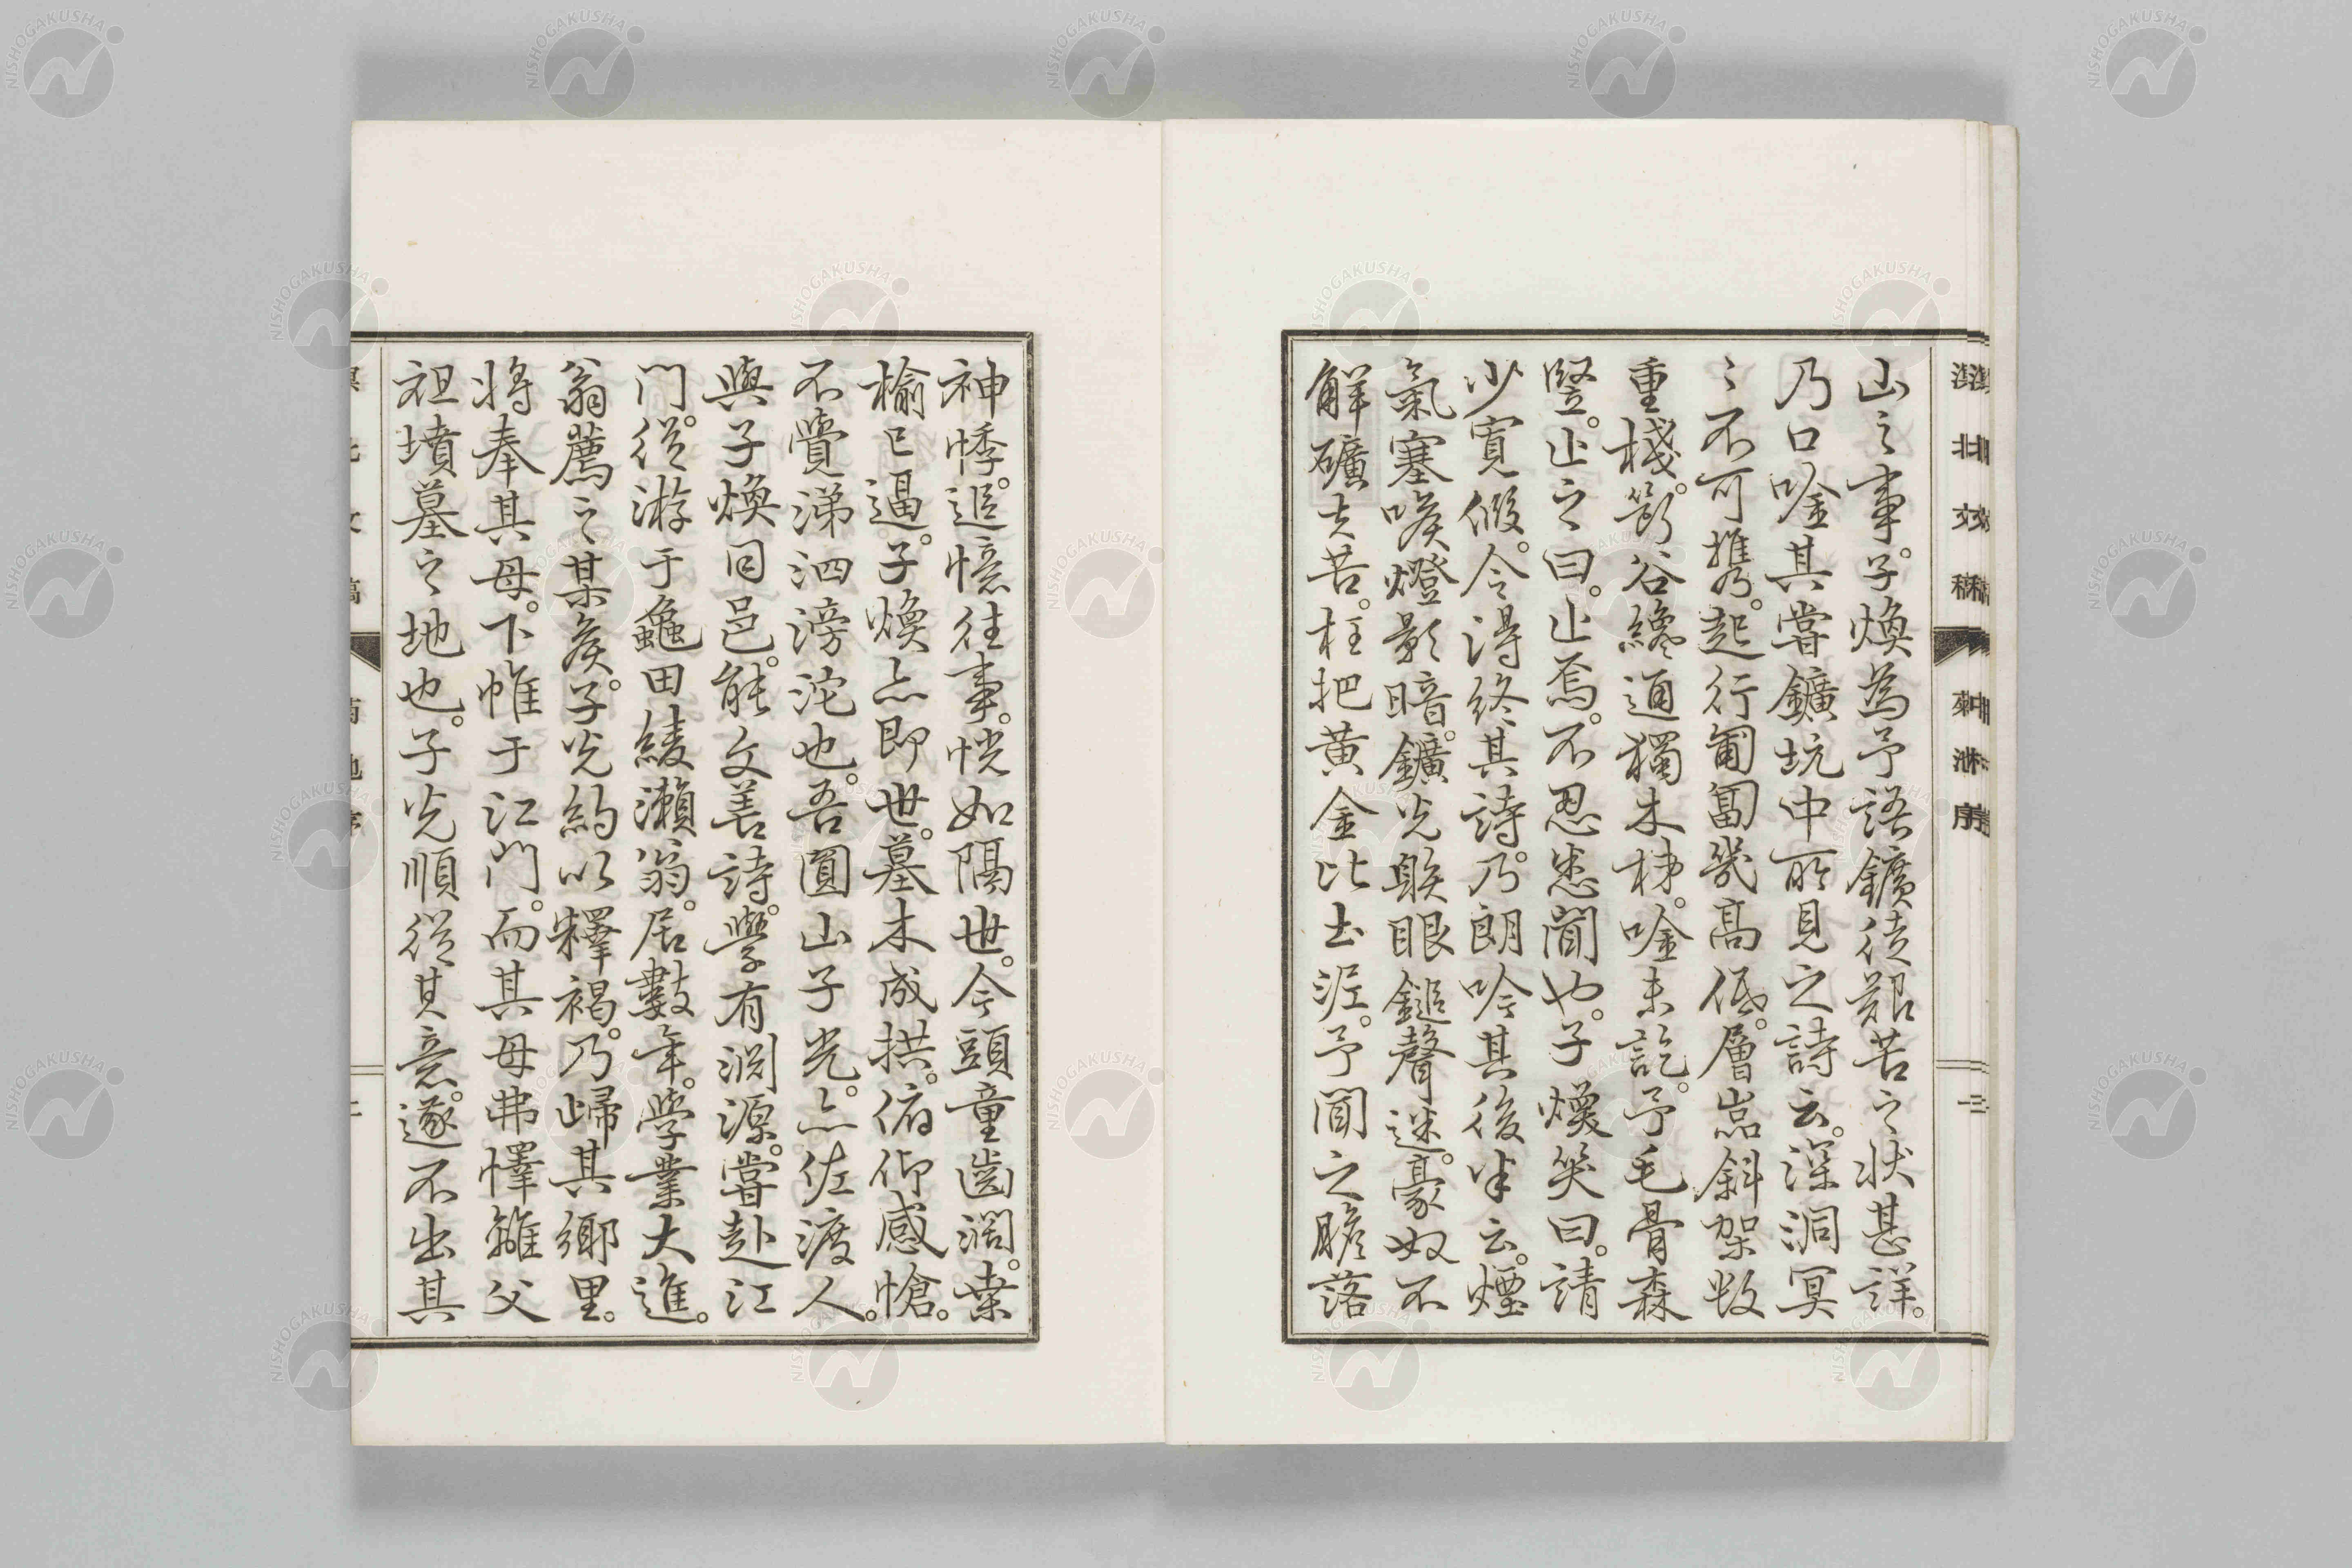 山之事。子煥為予語鑛徒艱苦之狀甚詳。
乃口唫其嘗鑛坑中所見之詩云。深洞冥
〻不可攜。起行匍匐幾高低。層嵓斜架数
重棧。谿谷纔通獨木梯。唫未訖。予毛骨森
竪。止之曰。止焉。不忍悉聞也。子煥笑曰。請
少寬假。令得終其詩。乃朗吟其後半云。煙
氣塞喉燈影暗。鑛光眹眼鎚聲迷。豪奴不
解礦夫苦。枉把黃金比土泥。予聞之膽落
神悸。追憶往事。恍如隔世。今頭童齒濶。桒
榆已逼。子煥亦即世。墓木成拱。俯仰感愴。
不覺涕泗滂沱也。吾圓山子光。亦佐渡人。
與子煥同邑。能文善詩。學有淵源。嘗赴江
門。從游于龜田綾瀨翁。居數年。學業大進。
翁薦之某侯。子光約以釋褐。乃歸其鄉里。
将奉其母。下帷于江門。而其母弗懌離父
祖墳墓之地也。子光順從其意。遂不出其
NISHOGAKUSHA